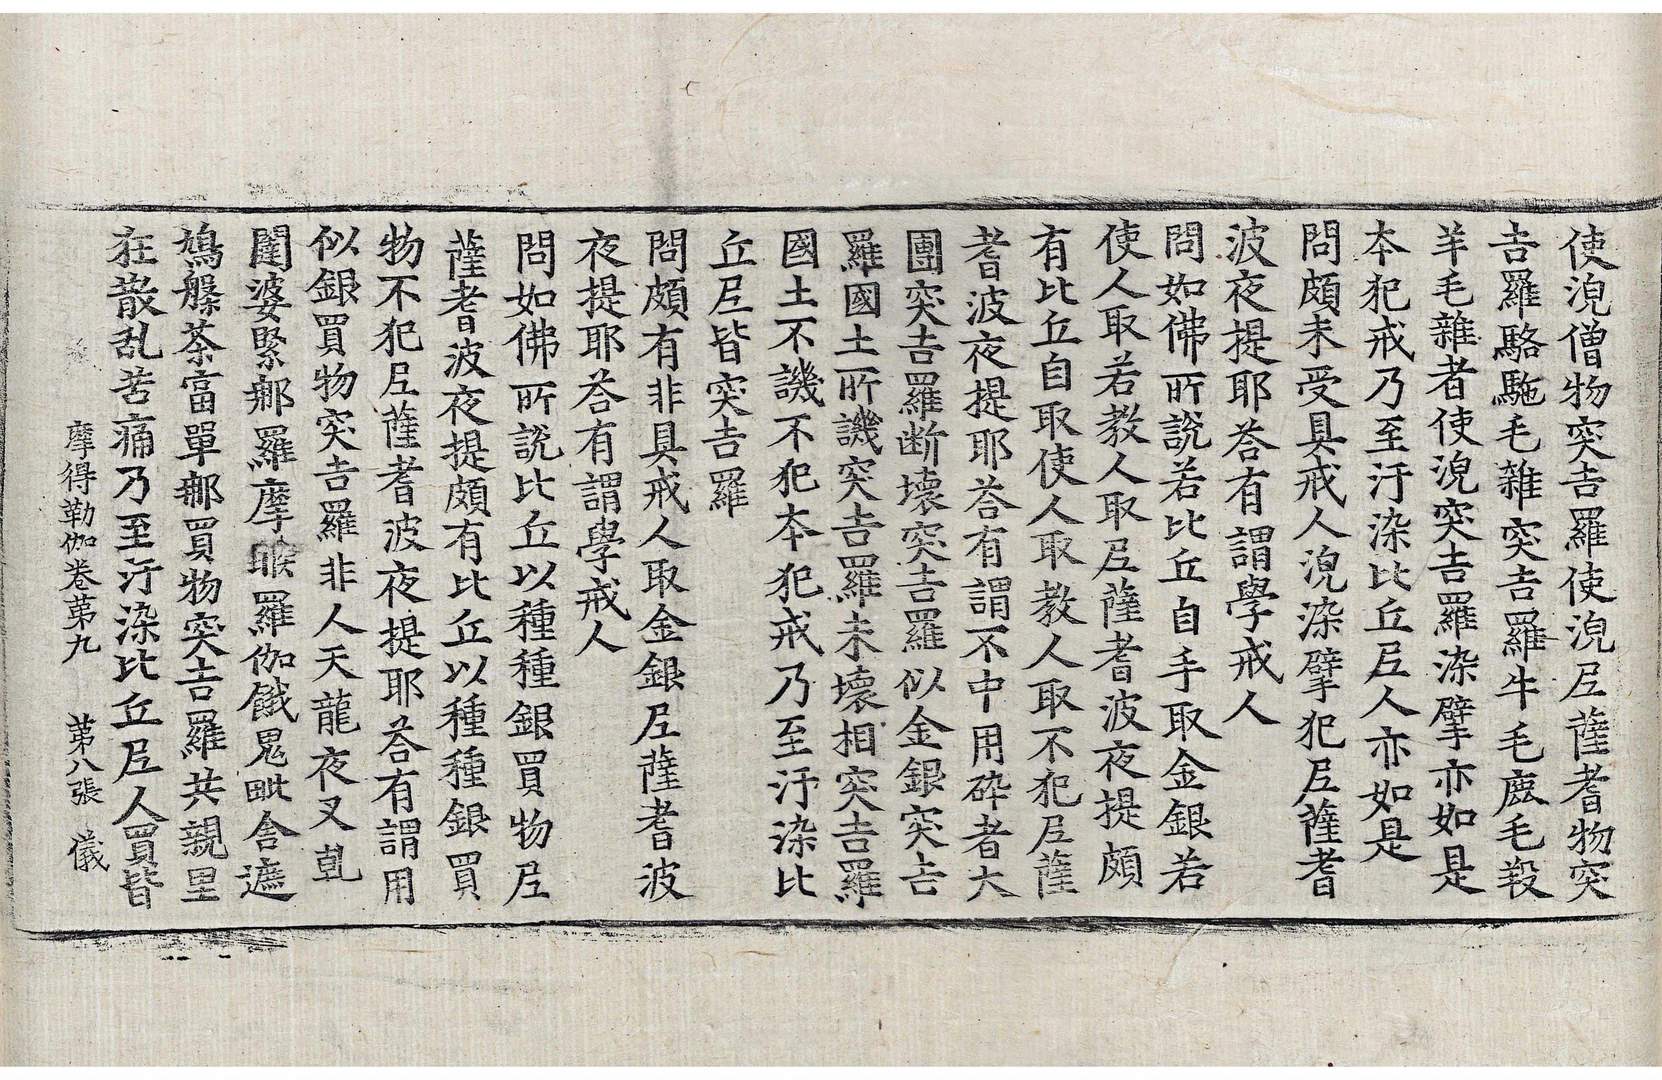 使浣僧物突吉羅使浣尼薩耆物突
吉羅駱駞毛雜突吉羅牛毛鹿毛羖
羊毛雜者使浣突吉羅染擘亦如是
本犯戒乃至汙染比丘尼人亦如是
問頗未受具戒人浣染擘犯尼薩耆
波夜提耶荅有謂學戒人
問如佛所說若比丘自手取金銀若
使人取若教人取尼薩耆波夜提頗
有比丘自取使人取教人取不犯尼薩
耆波夜提耶荅有謂不中用碎者大
團突吉羅断壞突吉羅似金銀突吉
羅國土所譏突吉羅未壞相突吉羅
國土不譏不犯本犯戒乃至汙染比
丘尼皆突吉羅
問頗有非具戒人取金銀尼薩耆波
夜提耶荅有謂學戒人
問如佛所說比丘以種種銀買物尼
薩耆波夜提頗有比丘以種種銀買
物不犯尼薩耆波夜提耶荅有謂用
似銀買物突吉羅非人天龍夜叉乹
闥婆緊那羅摩睺羅伽餓鬼毗舍遮
鳩槃荼富單那買物突吉羅共親里
狂散乱苦痛乃至汙染比丘尼人買皆
摩得勒伽卷苐九 苐八張 儀